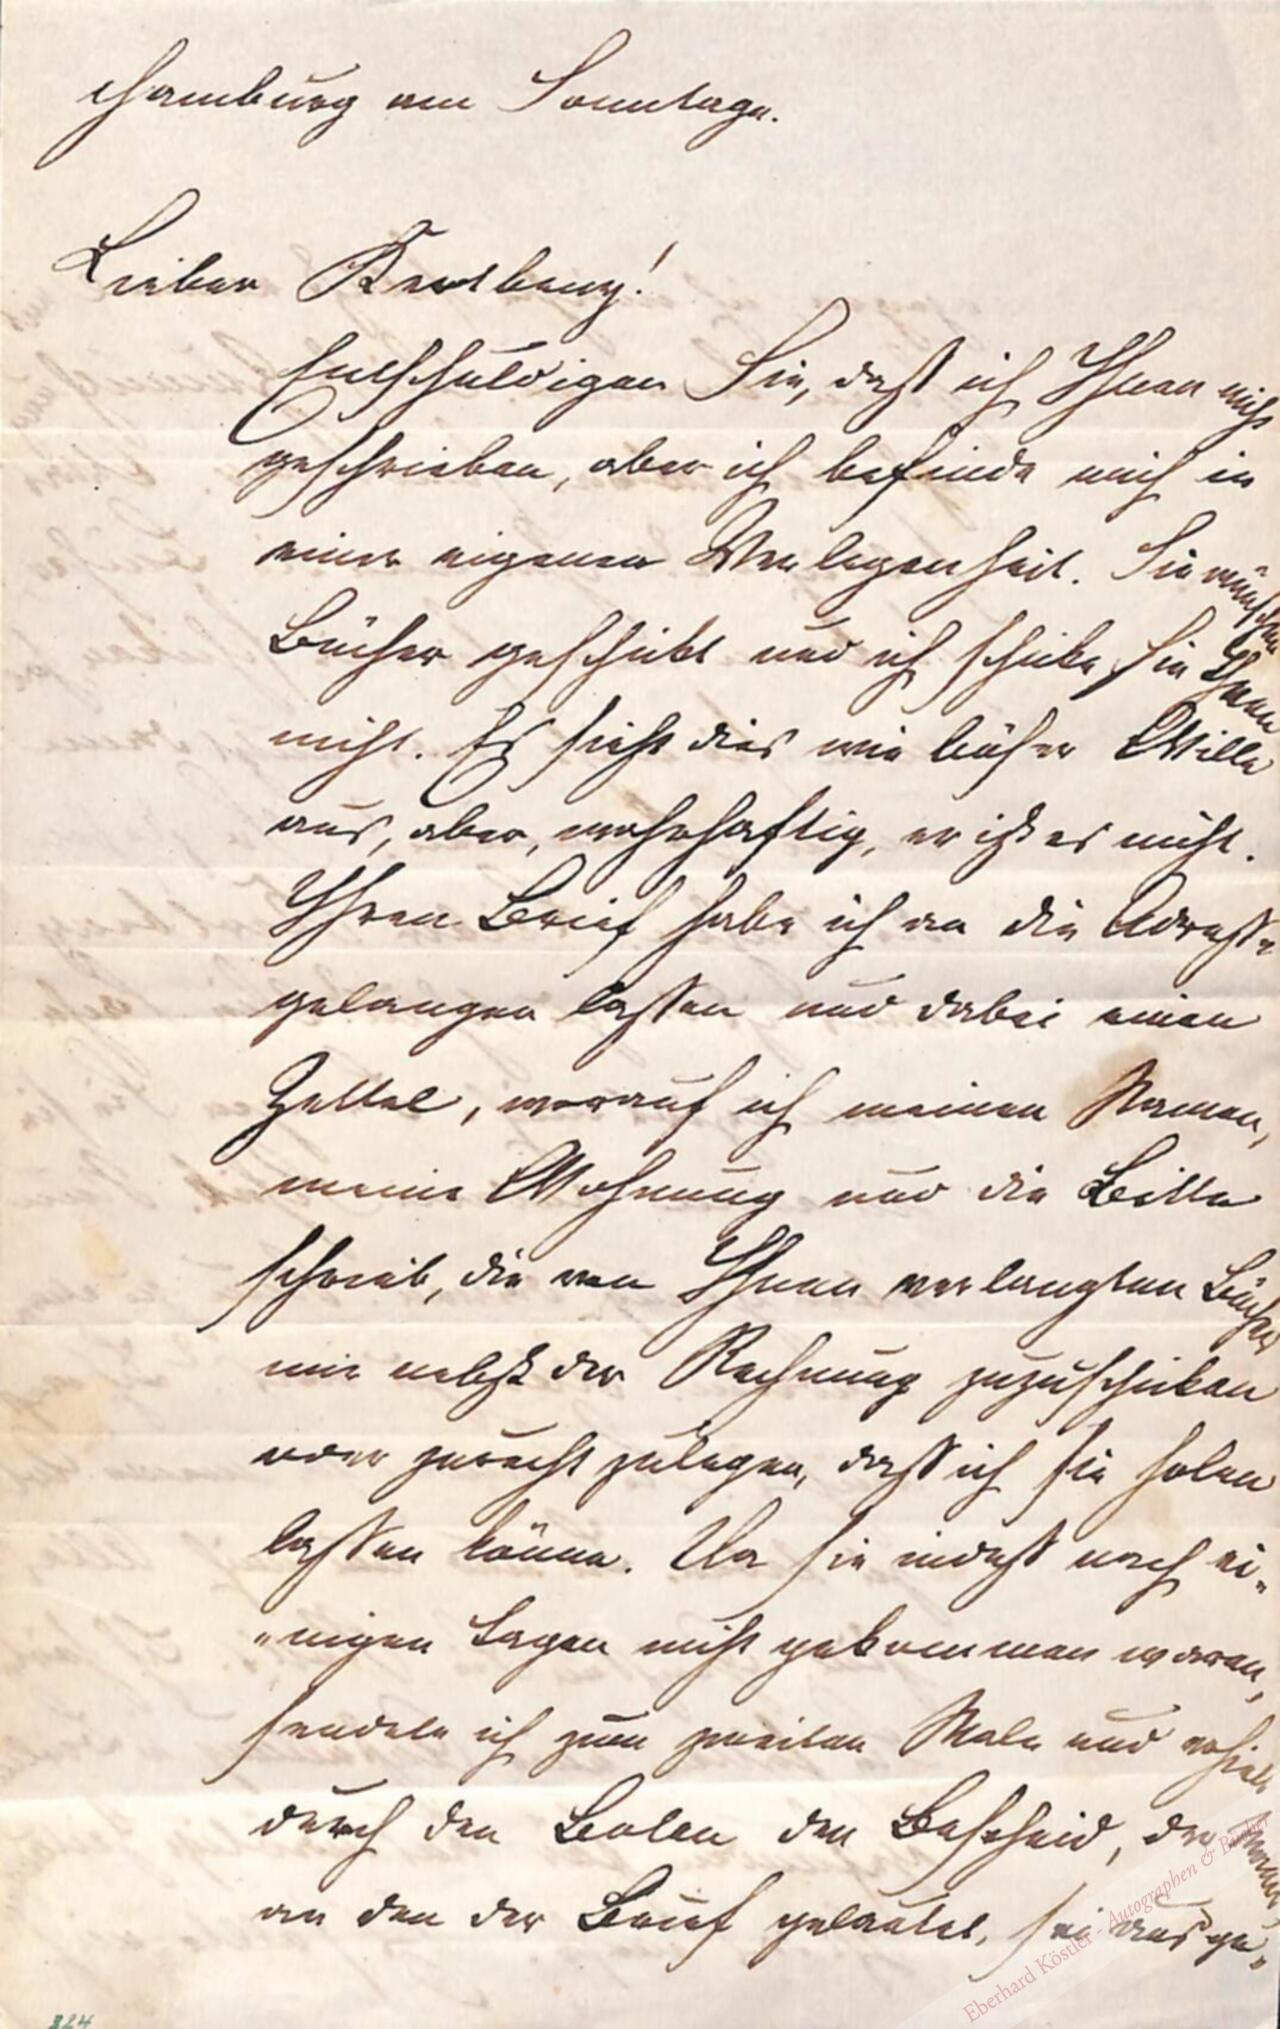 Hamburg am Sonntage.
Lieber Kertbeny!
Entschuldigen Sie, daß ich Ihnen nicht
geschrieben, aber ich befinde mich in
einer eigenen Verlegenheit. Sie wünschen
Bücher geschickt und ich schicke sie Ihnen
nicht. Es sieht dies wie böser Wille
aus, aber, wahrhaftig, er ist es nicht.
Ihren Brief habe ich an die Adresse
gelangen lassen und dabei einen
Zettel, worauf ich meinen Namen,
meine Wohnung und die Bitte
schrieb, die von Ihnen verlangten Bücher
mir nebst der Rechnung zuzuschicken
oder zurecht zulegen, daß ich sie holen
lassen könne. Da sie indeß nach ei-
nigen Tagen nicht gekommen waren,
sendete ich zum zweiten Male und erhielt
durch den Boten den Bescheid, der
an den der Brief gelautet, sei ausge-
324
Eberhard Köstler - Autographen & Bücher